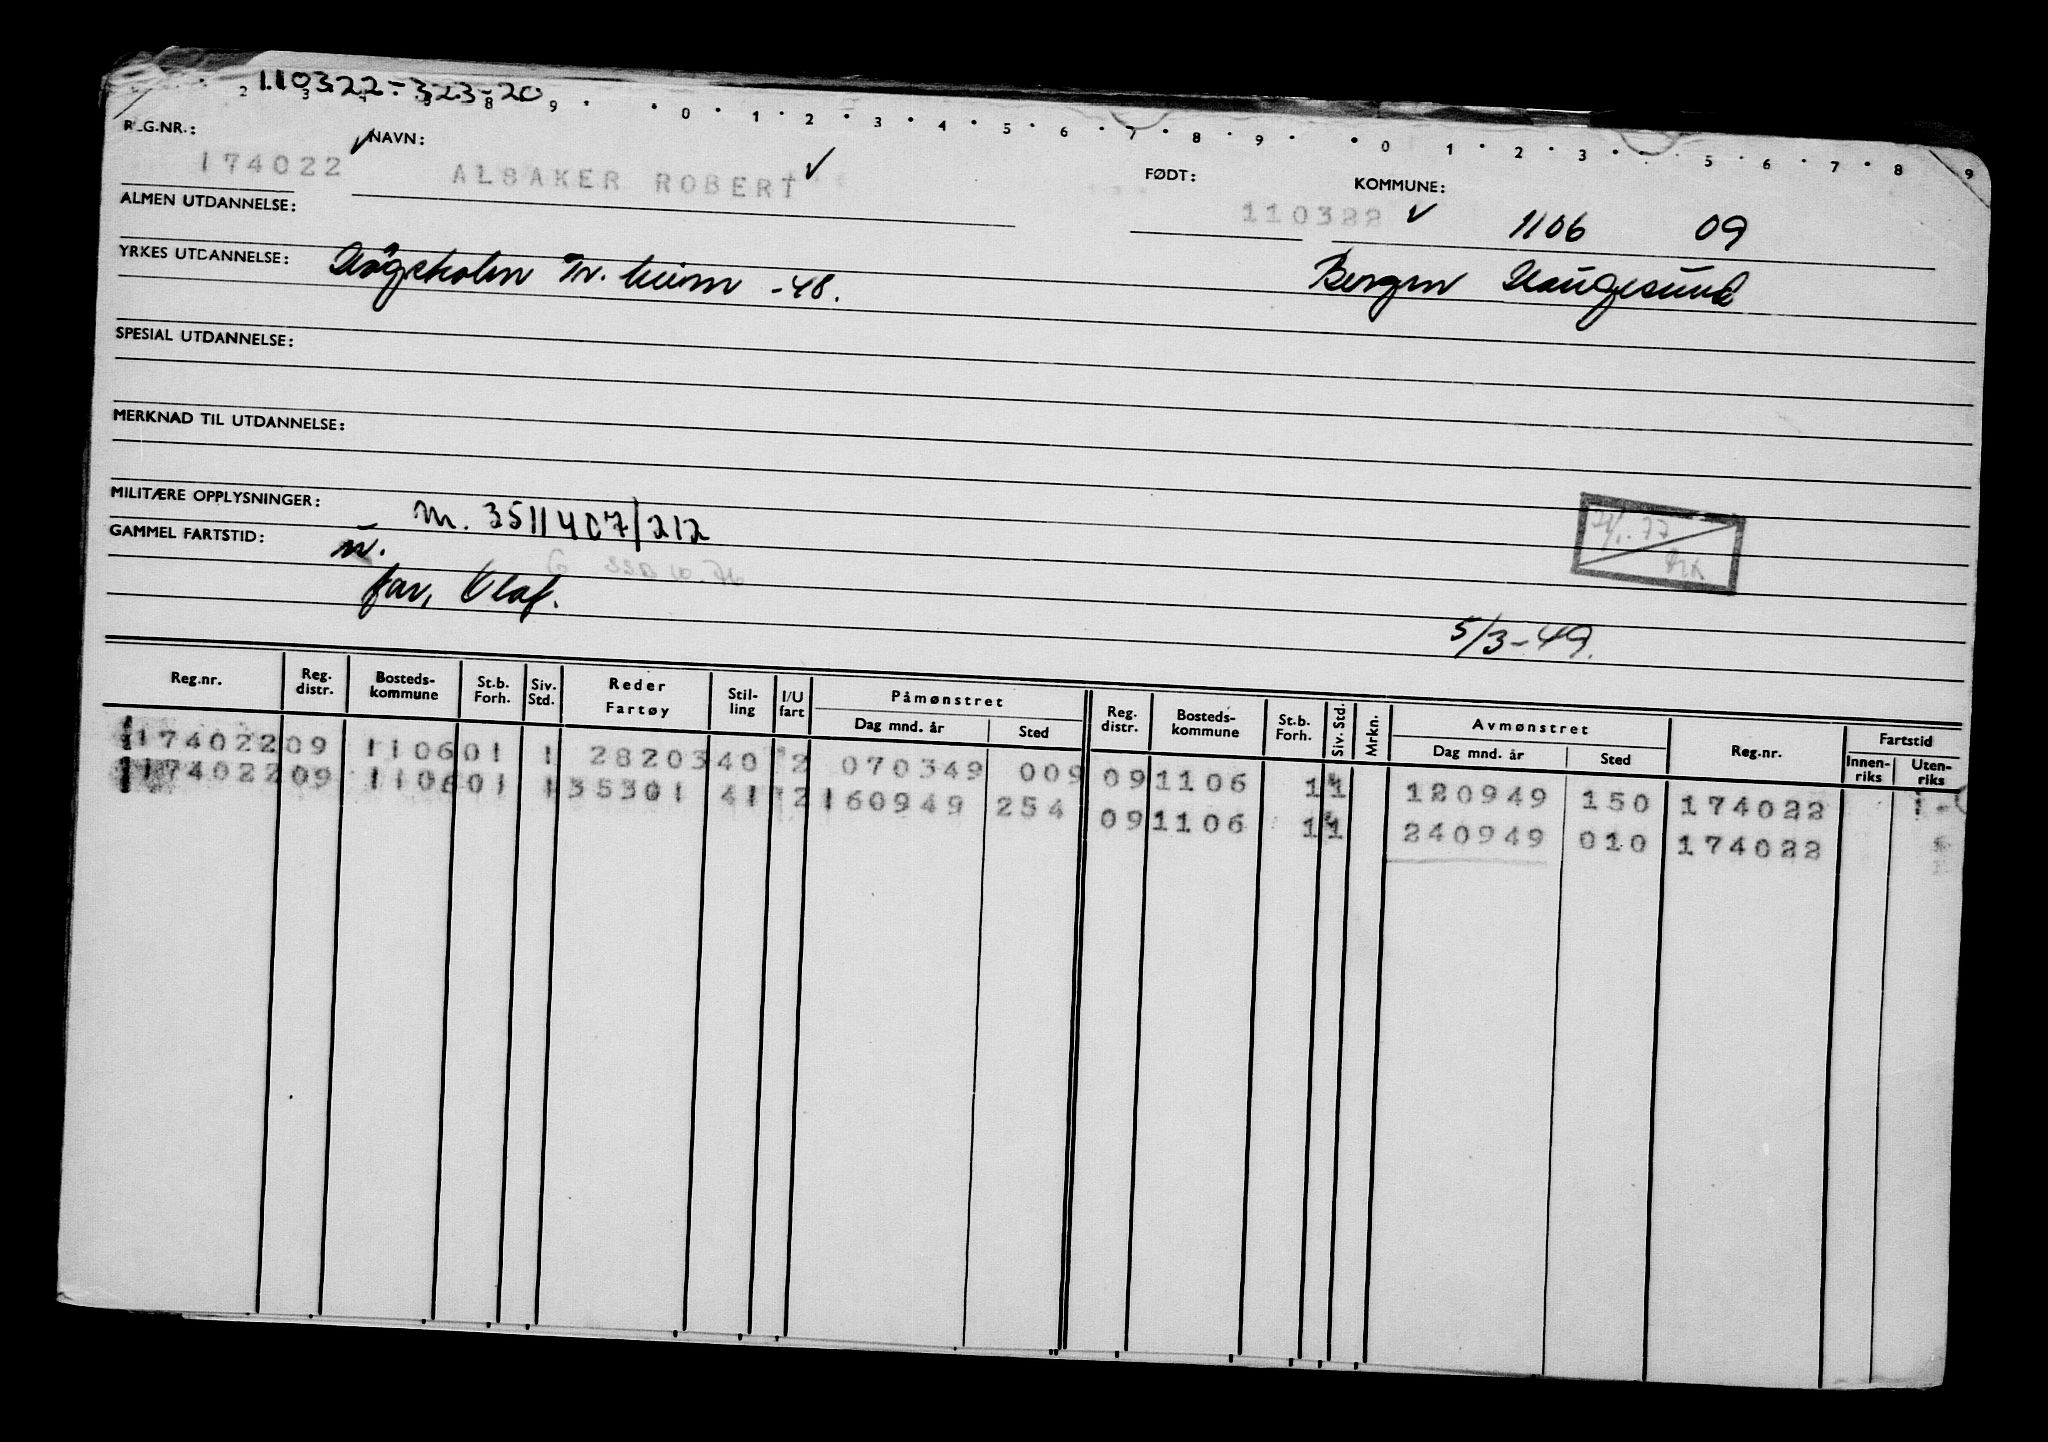 110322-323-20
2 3 8 9 0 1 2 3 4 5 6 7 8 9 0 1 2 3 5 6 7 8 9
REG.NR.: NAVN: FØDT: KOMMUNE:
174022 ALSAKER ROBERT 110322 1106 09
ALMEN UTDANNELSE:
YRKES UTDANNELSE: Tr. heim -48. Bergen Haugesund
SPESIAL UTDANNELSE:
MERKNAD TIL UTDANNELSE:
MILITÆRE OPPLYSNINGER: M. 3511407/212
GAMMEL FARTSTID:
far, Olaf.
5/3-49.
Reg.nr. Reg. distr. Bosteds-kommune St.b. Forh. Siv. Std. Reder Fartøy Stil-ling I/U fart Påmønstret Dag mnd. år Sted Reg. distr. Bosteds-kommune St.b. Forh. Siv. Std. Mrkn. Avmønstret Dag mnd. år Sted Reg.nr. Fartstid Innen-riks Uten-riks
174022 09 1106 01 1 28203 40 2 070349 009 09 1106 1 1 120949 150 174022
174022 09 1106 01 1 35301 41 2 160949 254 09 1106 1 1 240949 010 174022